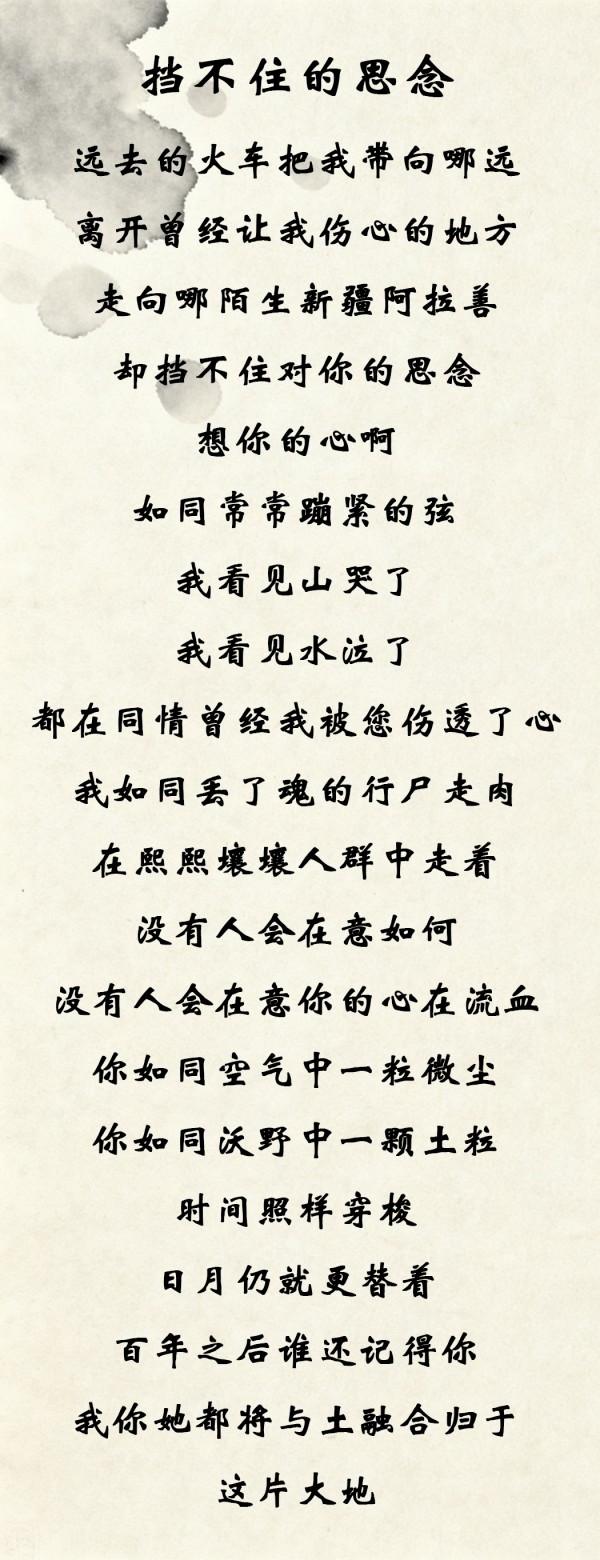 挡不住的思念
远去的火车把我带向哪远
离开曾经让我伤心的地方
走向哪陌生新疆阿拉善
却挡不住对你的思念
想你的心啊
如同常常蹦紧的弦
我看见山哭了
我看见水泣了
都在同情曾经我被您伤透了心
我如同丢了魂的行尸走肉
在熙熙壤壤人群中走着
没有人会在意如何
没有人会在意你的心在流血
你如同空气中一粒微尘
你如同沃野中一颗土粒
时间照样穿梭
日月仍就更替着
百年之后谁还记得你
我你她都将与土融合归于
这片大地